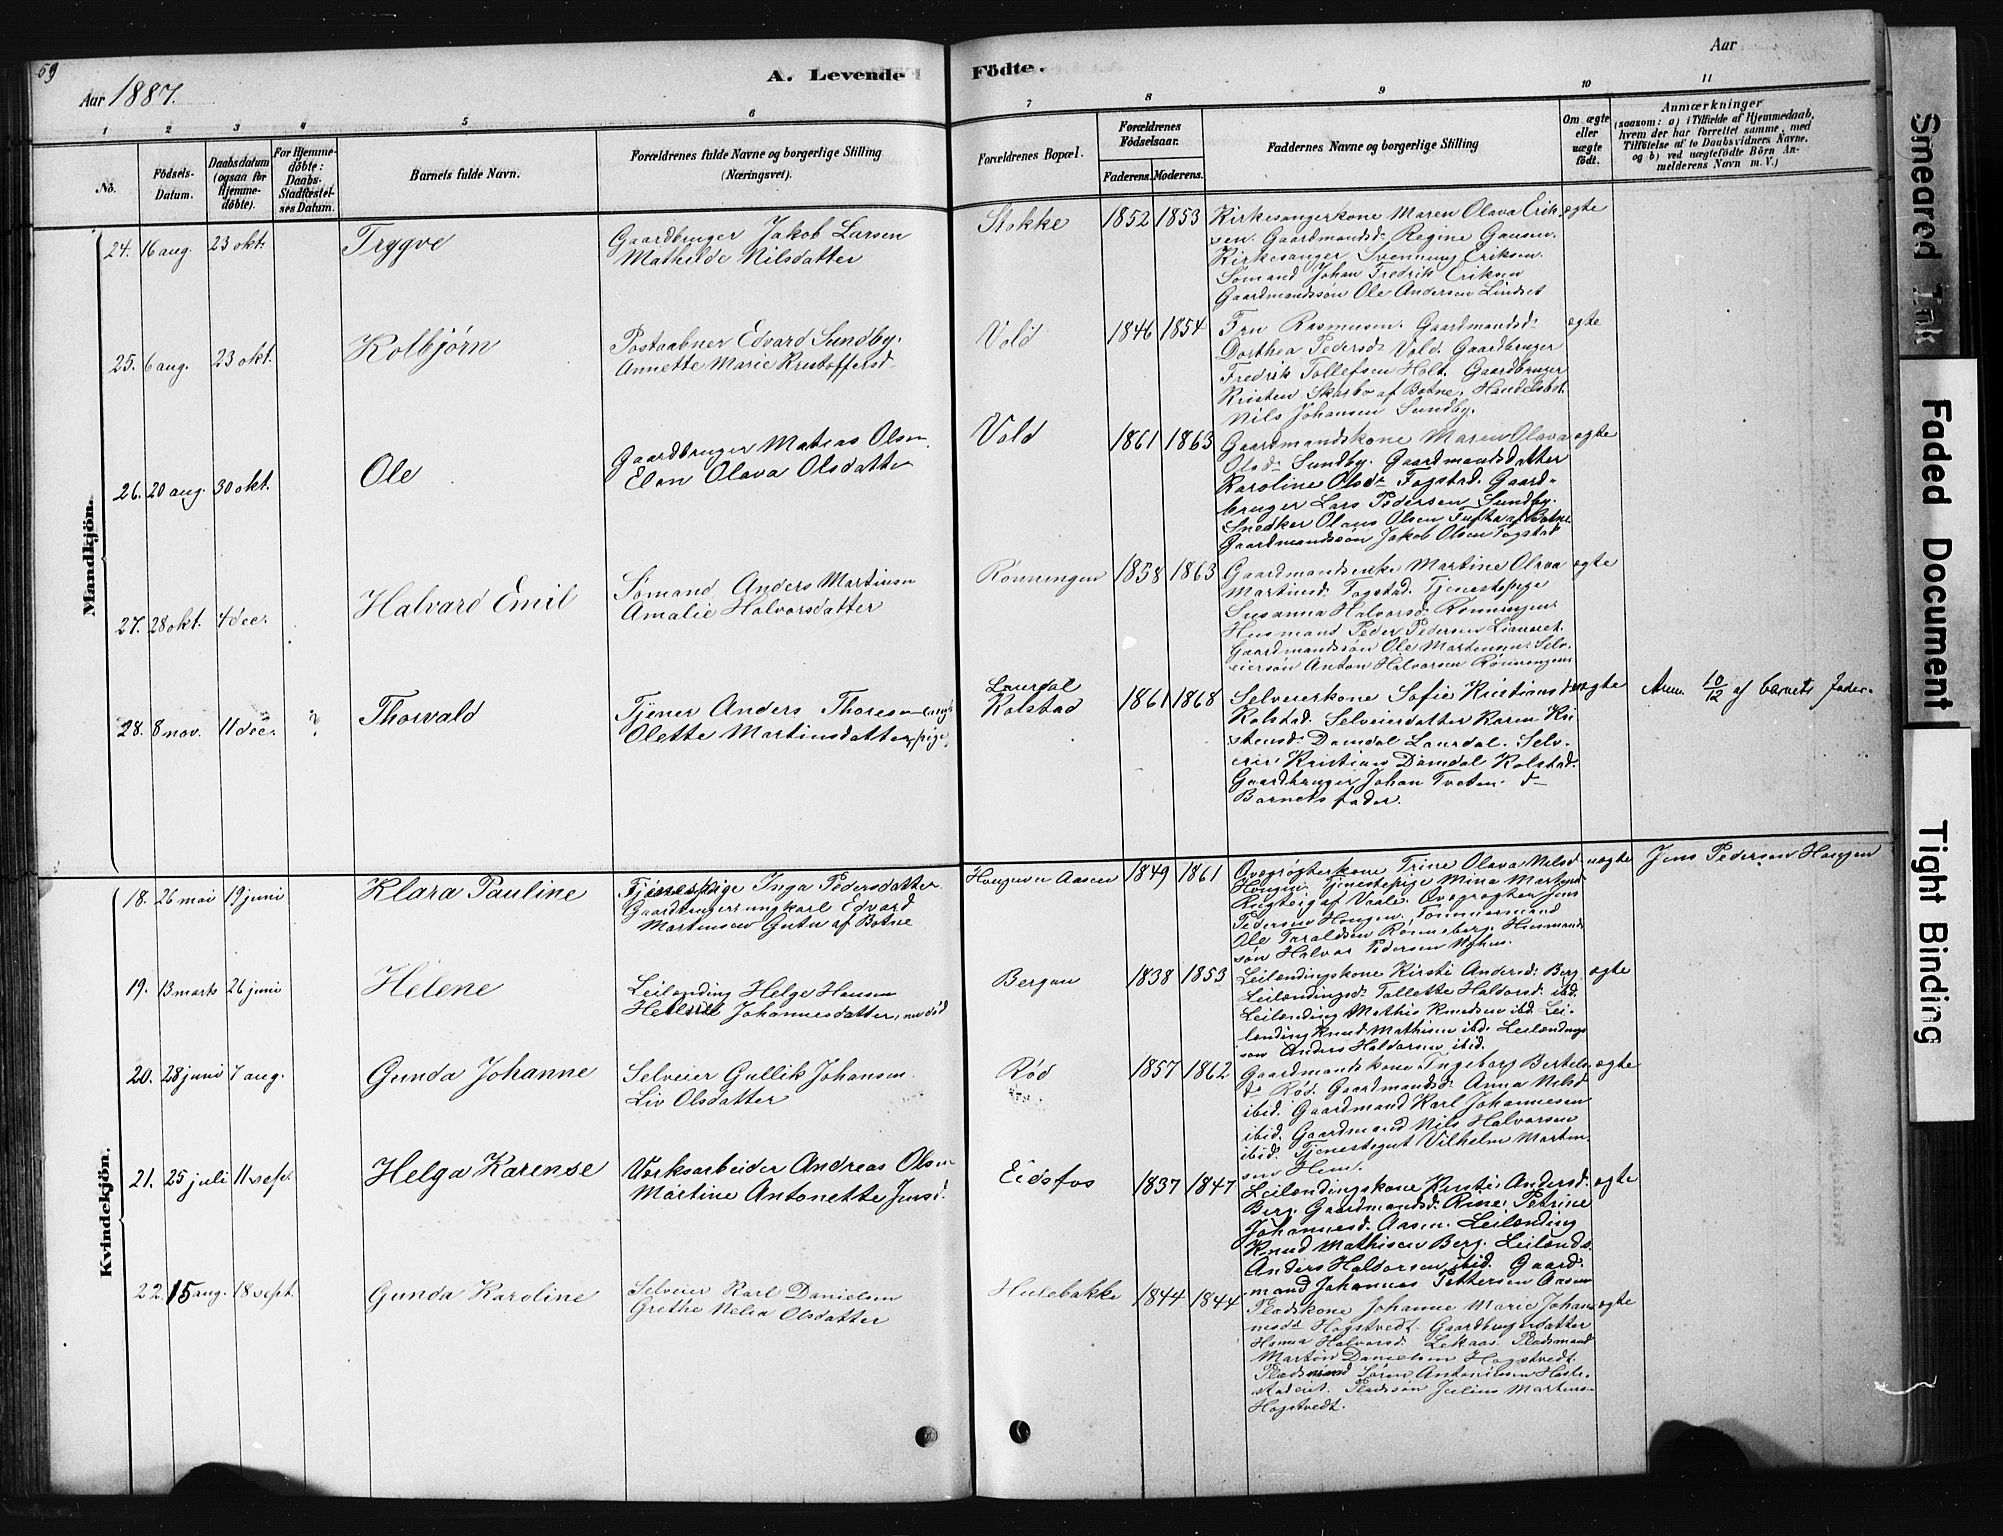 59
Aar 1887.
A. Levende Födte.
Aar
1 2 3 4 5 6 7 8 9 10 11
No.
Födsels-Datum.
Daabsdatum (ogsaa for Hjemme-döbte).
For Hjemme-döbte: Daabs-Stadfæstel-ses Datum.
Barnets fulde Navn.
Forældrenes fulde Navne og borgerlige Stilling (Næringsvei).
Forældrenes Bopæl.
Forældrenes Födselsaar.
Faderens. Moderens.
Faddernes Navne og borgerlige Stilling
Om ægte eller uægte födt.
Anmærkninger
(saasom: a) i Tilfælde af Hjemmedaab,
hvem der har forrettet samme, med
Tilföielse af to Daabsvidners Navne.
og b) ved uægtefödte Börn An-
melderens Navn m. V.)
Mandkjön.
24. 16 aug 23 okt. Trygve
Gaardbruger Jakob Larsen
Mathilde Nilsdatter
Stokke 1852 1853
Kirkesangerkone Maren Olava Erik-
sen. Gaardmandsd. Regine Hansen.
Kirkesanger Svennung Eriksen.
Sømand Johan Fredrik Eriksen
Gaardmandssøn Ole Andersen Lindset
ægte
25. 6 aug. 23 okt. Kolbjørn
Postaabner Edvard Sundby.
Annette Marie Kristoffersd.
Vold 1846 1854
Fru Rasmussen. Gaardmandsd.
Dorthea Pedersd. Vold. Gaardbruger
Fredrik Tollefsen Holt. Gaardbruger
Kristen Skarbo af Botne. Handelsbet.
Nils Johansen Sundby.
ægte
26. 20 aug. 30 okt. Ole
Gaardbruger Matias Olsen.
Elen Olava Olsdatter
Vold 1861 1863
Gaardmandskone Maren Olava
Olsd. Sundby. Gaardmandsdatter
Karoline Olsd. Fogstad. Gaard-
bruger Lars Pedersen Sundby.
Snedker Olaus Olsen Tufthe af Botne
Gaardmandssøn Jakob Olsen Fogstad
ægte
27. 28 okt. 4 dec. Halvard Emil
Sømand Anders Martinsen
Amalie Halvorsdatter
Rönningen 1858 1863
Gaardmandsenke Martine Olava
Martinsd. Fogstad. Tjenestepige
Susanna Halvorsd. Rönningen.
Husmand Peder Pedersen
Gaardmandssøn Ole Martinsen. Selv-
eiersøn Anton Halvorsen Rönningen
ægte
28. 8 nov. 11 dec. ? Thorvald
Tjener Anders Thoresen ungk.
Olette Martinsdatter, pige,
Laurdal
Kolstad 1861 1868
Selveierkone Sofie Kristiansd.
Kolstad. Selveierdatter Karen Kri
stensd. Damdal Laurdal. Selv-
eier Kristian Damdal Kolstad.
Gaardbruger Johan Tveten. &
Barnets fader.
uægte
Anm. 10/12 af barnets fader.
Kvindekjön.
18. 26 mai 19 juni Klara Pauline
Tjenestepige Inga Pedersdatter
Gaardbruger ungkarl Edvard
Martinsen Guten af Botne
Hougen Aasen 1849 1861
Ovnrøgterkone Trine Olava Nilsd
Hougen. Tjenestepige Mina Martinsd.
af Vaale. Ovnrøgter Jens
Pedersen Hougen. Tømmermand
Ole Taraldsen Rønneberg. Husmands
søn Halvor Pedersen
uægte
Jens Pedersen Hougen
19. 13 marts 26 juni Helene
Leilænding Helge Hansen
Helene Johannesdatter, nu død
Bergan 1838 1853
Leilændingskone Kirsti Andersd. Berg
Leilændingsd. Tollette Haldorsd. ibd.
Leilænding Mathis Knudsen ibd. Lei-
lænding Knud Mathisen ibd. Leilændings
søn Anders Haldorsen ibid.
ægte
20. 28 juni 7 aug. Gunda Johanne
Selveier Gullik Johansen.
Liv Olsdatter
Rød 1857 1862
Gaardmandskone Ingeborg Bertels-
d. Rød. Gaardmandsd. Anna Nilsd
ibid. Gaardmand Karl Johannesen
ibid. Gaardmand Nils Halvorsen
ibid. Tjenestegut Vilhelm Martin-
sen Hem.
ægte
21. 25 juli 11 sept. Helga Karense
Værksarbeider Andreas Olsen
Martine Antonette Jensd.
Eidsfos 1837 1847
Leilændingskone Kirsti Andersd.
Berg. Gaardmandsd. Rine Petrine
Johannesd. Aasen. Leilænding
Knud Mathisen Berg. Leilænds.
Anders Haldorsen ibid. Gaard-
mand Johannes Pettersen Aasen
ægte
22. 15 aug. 18 sept. Gunda Karoline
Selveier Karl Danielsen
Grethe Nelia Olsdatter
Hulebakke 1844 1844
Pladskone Johanne Marie Johan
nesdt Hogstvedt. Gaardbrugerdatter
Hanna Halvorsd. Lekaas. Pladsmand
Martin Danielsen Hogstvedt.
Pladsmand Søren Antonisen
Pladssøn Julius Martins-
Hogstvedt.
ægte
Smeared Ink
Faded Document
Tight Binding